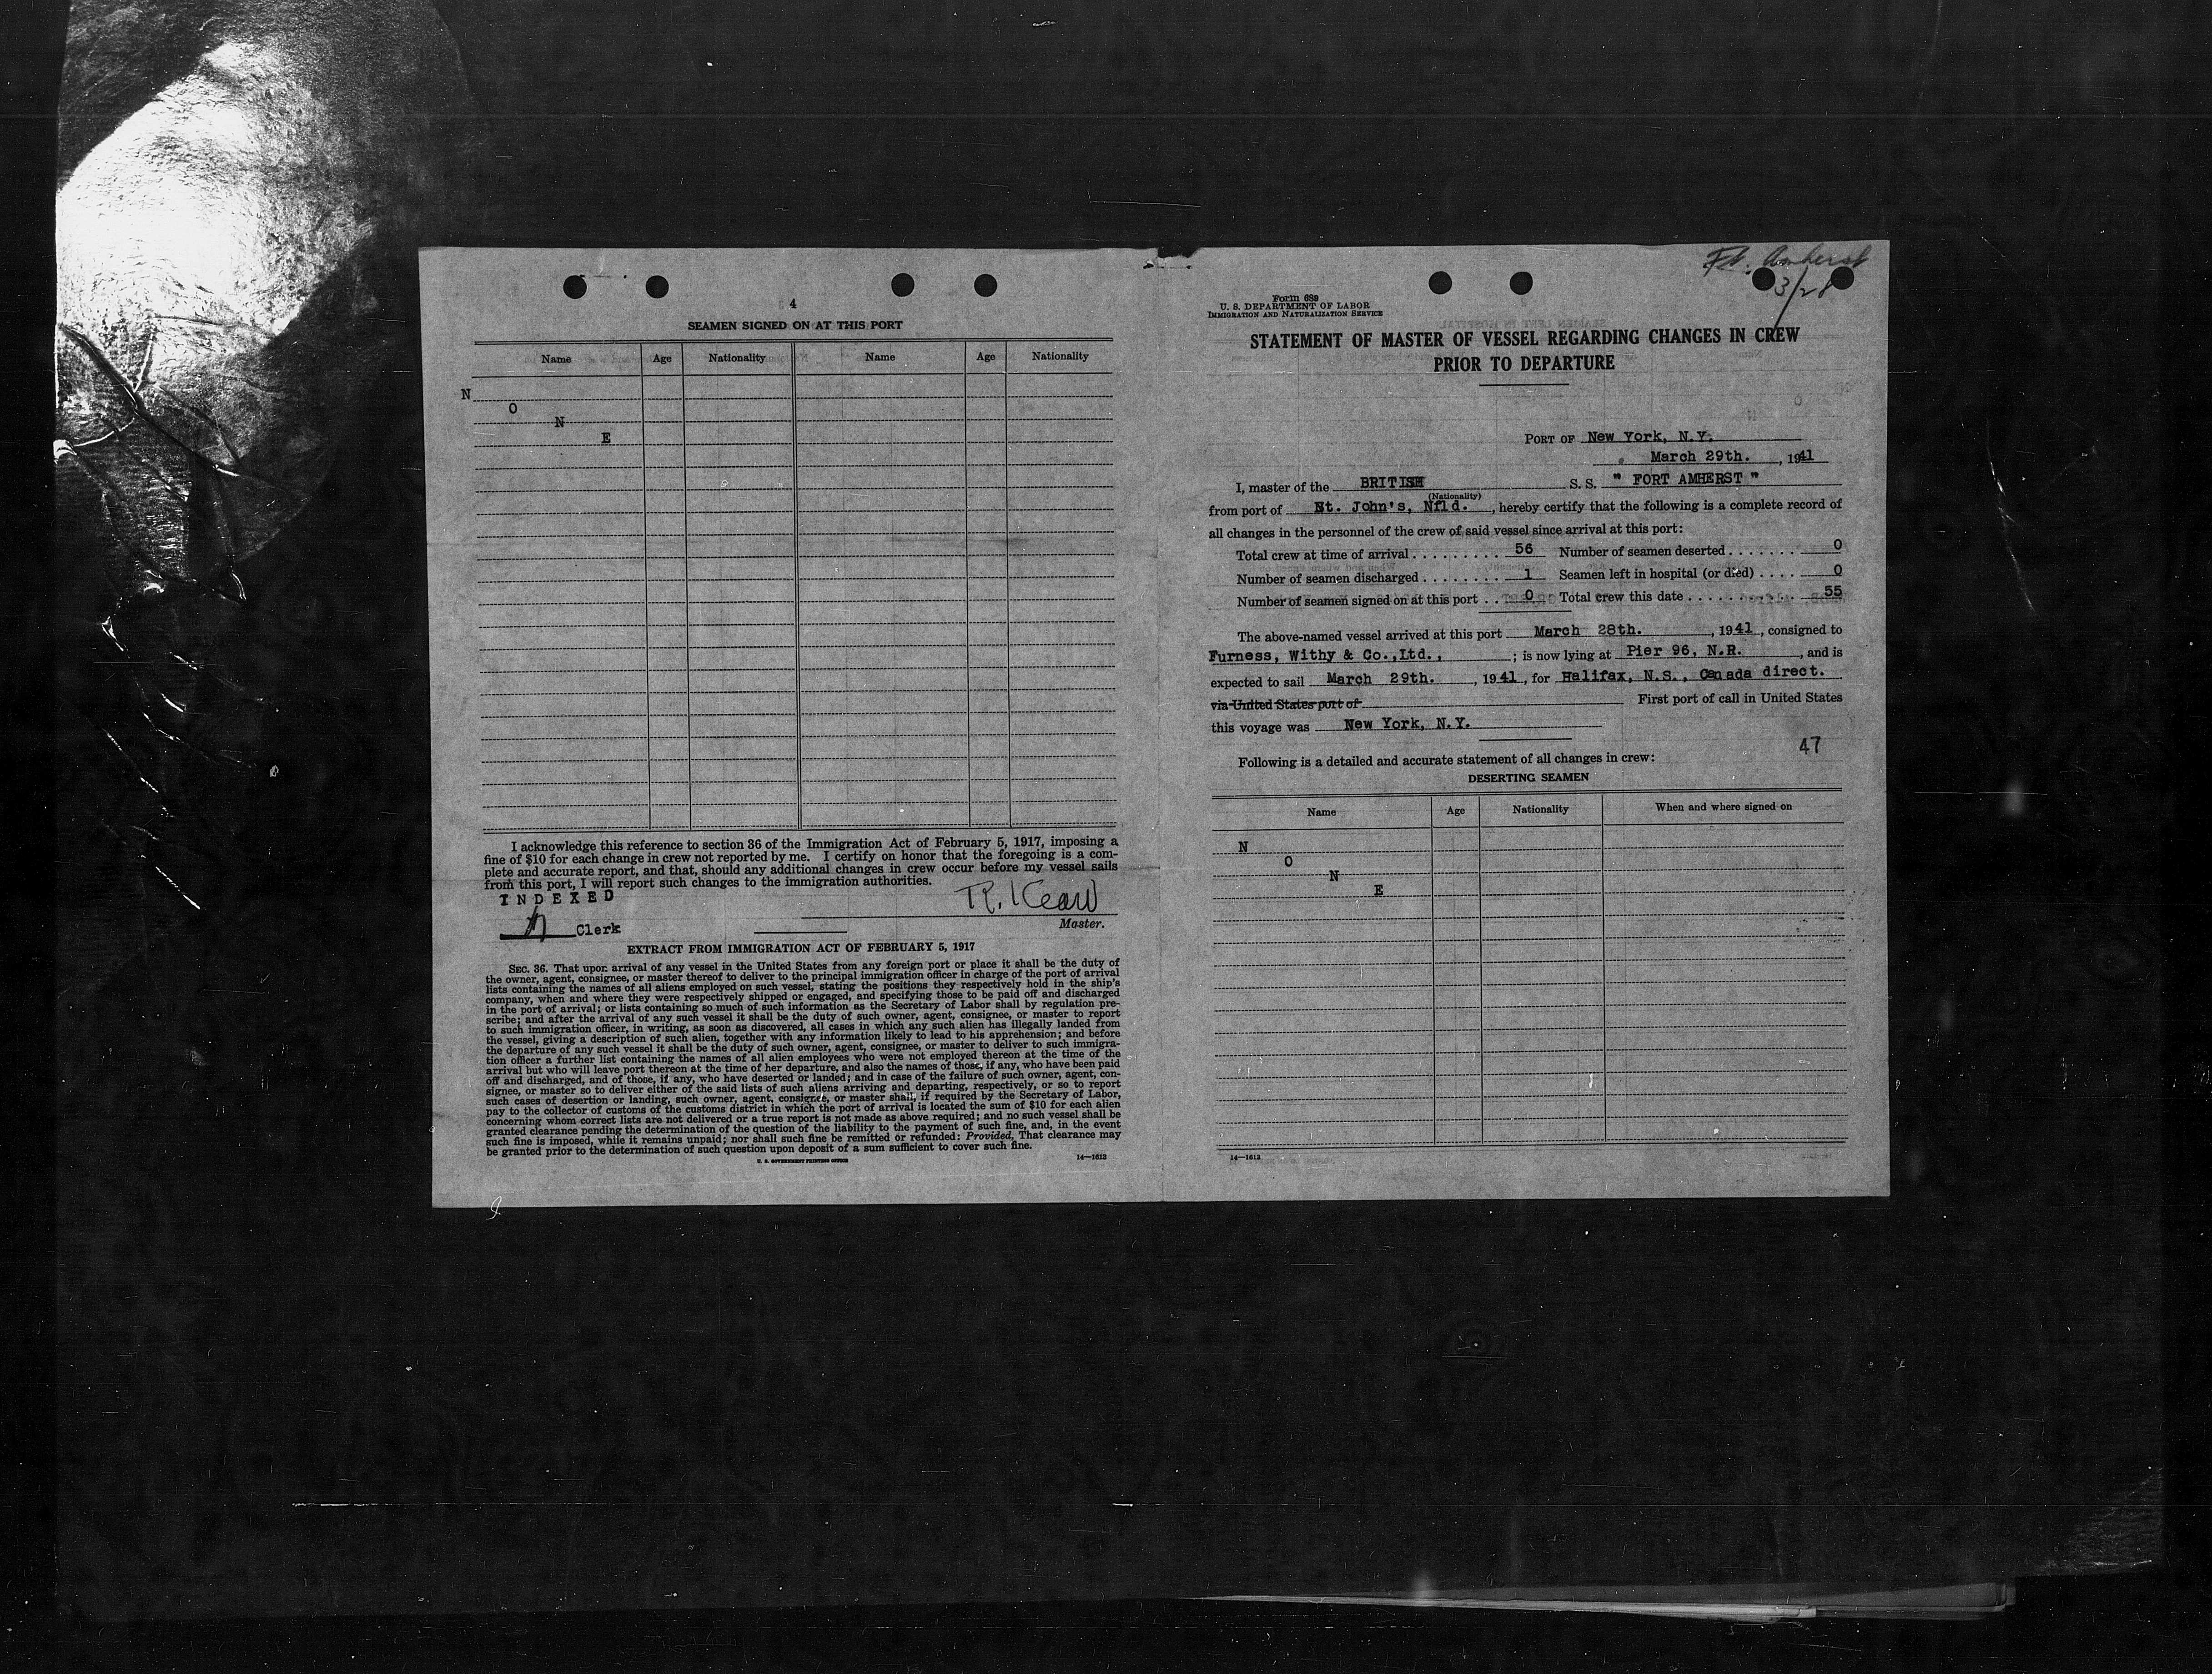 4
SEAMEN SIGNED ON AT THIS PORT
Name Age Nationality Name Age Nationality
N
O
N
E
I acknowledge this reference to section 36 of the Immigration Act of February 5, 1917, imposing a
fine of $10 for each change in crew not reported by me. I certify on honor that the foregoing is a com-
plete and accurate report, and that, should any additional changes in crew occur before my vessel sails
from this port, I will report such changes to the immigration authorities.
INDEXED
Clerk
Master.
EXTRACT FROM IMMIGRATION ACT OF FEBRUARY 5, 1917
SEC. 36. That upon arrival of any vessel in the United States from any foreign port or place it shall be the duty of
the owner, agent, consignee, or master thereof to deliver to the principal immigration officer in charge of the port of arrival
lists containing the names of all aliens employed on such vessel, stating the positions they respectively hold in the ship's
company, when and where they were respectively shipped or engaged, and specifying those to be paid off and discharged
in the port of arrival; or lists containing so much of such information as the Secretary of Labor shall by regulation pre-
scribe; and after the arrival of any such vessel it shall be the duty of such owner, agent, consignee, or master to report
to such immigration officer, in writing, as soon as discovered, all cases in which any such alien has illegally landed from
the vessel, giving a description of such alien, together with any information likely to lead to his apprehension; and before
the departure of any such vessel it shall be the duty of such owner, agent, consignee, or master to deliver to such immigra-
tion officer a further list containing the names of all alien employees who were not employed thereon at the time of the
arrival but who will leave port thereon at the time of her departure, and also the names of those, if any, who have been paid
off and discharged, and of those, if any, who have deserted or landed; and in case of the failure of such owner, agent, con-
signee, or master so to deliver either of the said lists of such aliens arriving and departing, respectively, or so to report
such cases of desertion or landing, such owner, agent, consignee, or master shall, if required by the Secretary of Labor,
pay to the collector of customs of the customs district in which the port of arrival is located the sum of $10 for each alien
concerning whom correct lists are not delivered or a true report is not made as above required; and no such vessel shall be
granted clearance pending the determination of the question of the liability to the payment of such fine, and, in the event
such fine is imposed, while it remains unpaid; nor shall such fine be remitted or refunded: Provided, That clearance may
be granted prior to the determination of such question upon deposit of a sum sufficient to cover such fine.
U. S. GOVERNMENT PRINTING OFFICE 14—1613
Ft. Amherst
3/28
Form 689
U. S. DEPARTMENT OF LABOR
IMMIGRATION AND NATURALIZATION SERVICE
STATEMENT OF MASTER OF VESSEL REGARDING CHANGES IN CREW
PRIOR TO DEPARTURE
PORT OF New York, N.Y.
March 29th. , 1941
I, master of the BRITISH S. S. " FORT AMHERST "
(Nationality)
from port of St. John's, Nfld. , hereby certify that the following is a complete record of
all changes in the personnel of the crew of said vessel since arrival at this port:
Total crew at time of arrival . . . . . . . . . 56 Number of seamen deserted . . . . . . . 0
Number of seamen discharged . . . . . . . . 1 Seamen left in hospital (or died) . . . . 0
Number of seamen signed on at this port . . 0 Total crew this date . . . . . . . . . . . 55
The above-named vessel arrived at this port March 28th. , 1941 , consigned to
Furness, Withy & Co.,Ltd., ; is now lying at Pier 96, N.R. , and is
expected to sail March 29th. , 1941 , for Halifax, N.S., Canada direct.
via United States port of First port of call in United States
this voyage was New York, N.Y.
47
Following is a detailed and accurate statement of all changes in crew:
DESERTING SEAMEN
Name Age Nationality When and where signed on
N
O
N
E
14—1613